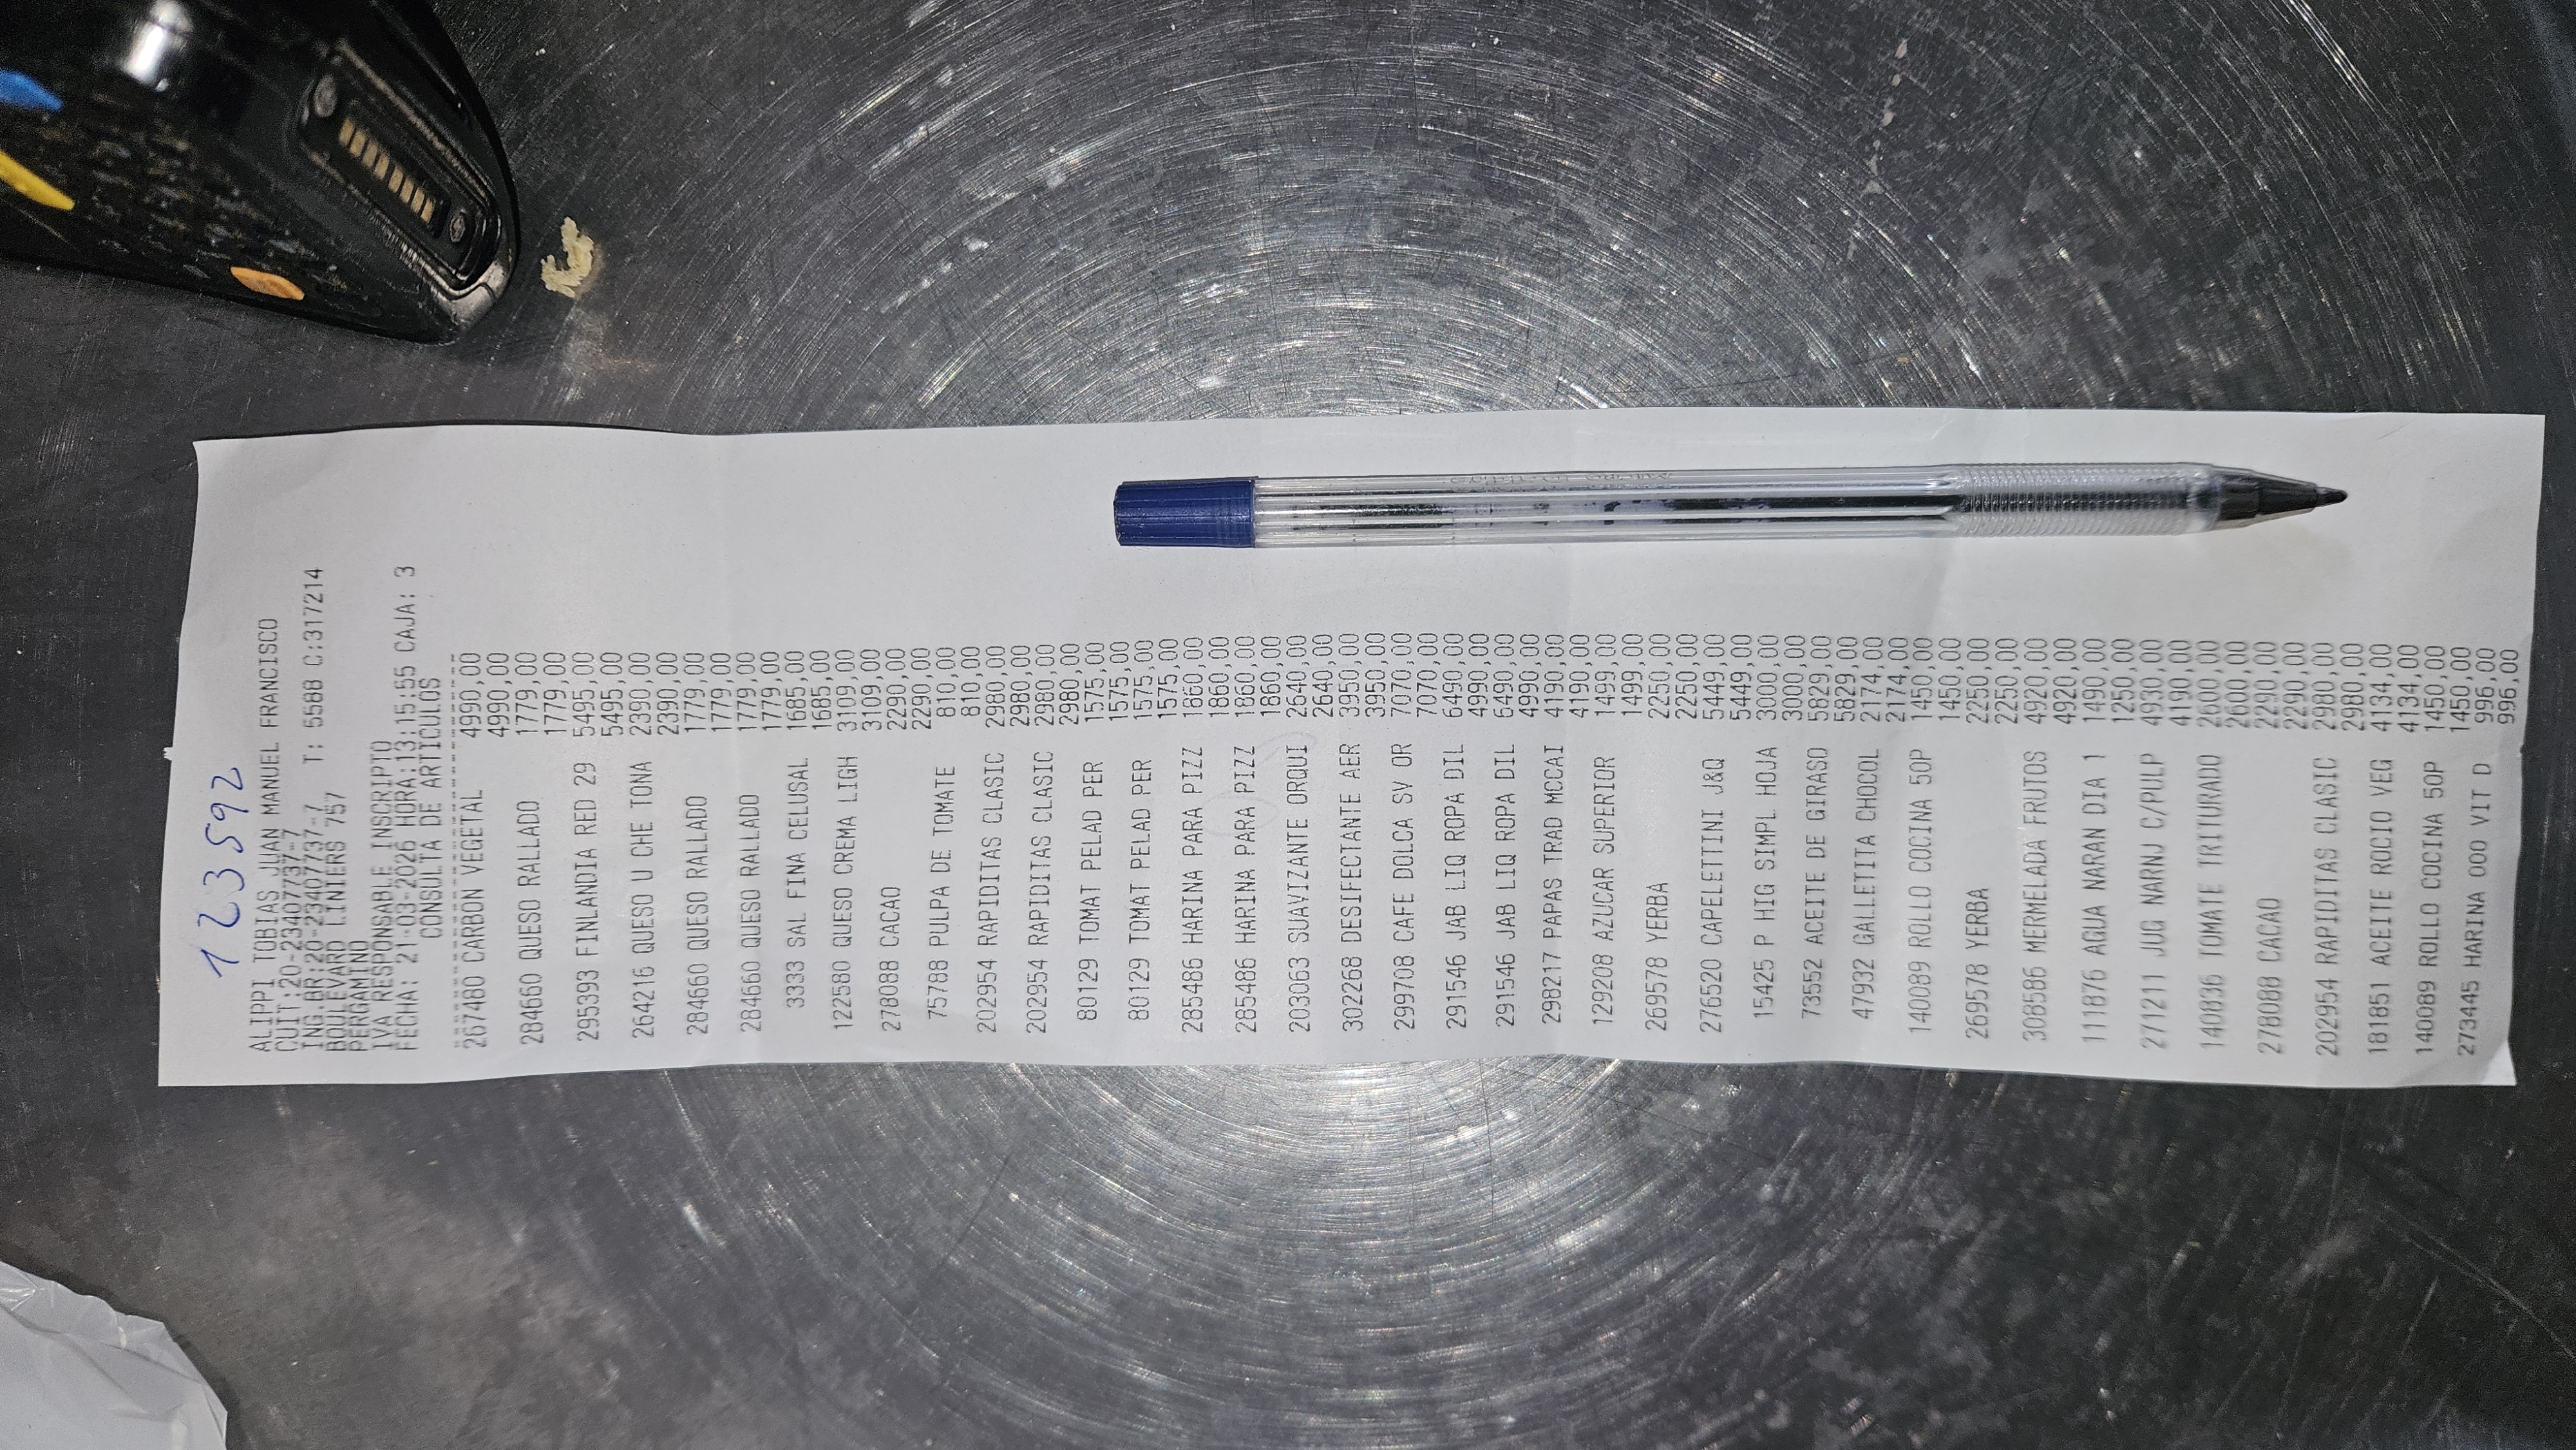 123592
ALIPPI TOBIAS JUAN MANUEL FRANCISCO
CUIT:20-23407737-7
ING.BR:20-23407737-7 T: 5588 C:317214
BOULEVARD LINIERS 757
PERGAMINO
IVA RESPONSABLE INSCRIPTO
FECHA: 21-03-2026 HORA:13:15:55 CAJA: 3
CONSULTA DE ARTICULOS
267480 CARBON VEGETAL 4990,00
4990,00
284660 QUESO RALLADO 1779,00
1779,00
295393 FINLANDIA RED 29 5495,00
5495,00
264216 QUESO U CHE TONA 2390,00
2390,00
284660 QUESO RALLADO 1779,00
1779,00
284660 QUESO RALLADO 1779,00
1779,00
3333 SAL FINA CELUSAL 1685,00
1685,00
122580 QUESO CREMA LIGH 3109,00
3109,00
278088 CACAO 2290,00
2290,00
75788 PULPA DE TOMATE 810,00
810,00
202954 RAPIDITAS CLASIC 2980,00
2980,00
202954 RAPIDITAS CLASIC 2980,00
2980,00
80129 TOMAT PELAD PER 1575,00
1575,00
80129 TOMAT PELAD PER 1575,00
1575,00
285486 HARINA PARA PIZZ 1860,00
1860,00
285486 HARINA PARA PIZZ 1860,00
1860,00
203063 SUAVIZANTE ORQUI 2640,00
2640,00
302268 DESIFECTANTE AER 3950,00
3950,00
299708 CAFE DOLCA SV OR 7070,00
7070,00
291546 JAB LIQ ROPA DIL 6490,00
4990,00
291546 JAB LIQ ROPA DIL 6490,00
4990,00
298217 PAPAS TRAD MCCAI 4190,00
4190,00
129208 AZUCAR SUPERIOR 1499,00
1499,00
269578 YERBA 2250,00
2250,00
276520 CAPELETTINI J&Q 5449,00
5449,00
15425 P HIG SIMPL HOJA 3000,00
3000,00
73552 ACEITE DE GIRASO 5829,00
5829,00
47932 GALLETITA CHOCOL 2174,00
2174,00
140089 ROLLO COCINA 50P 1450,00
1450,00
269578 YERBA 2250,00
2250,00
308586 MERMELADA FRUTOS 4920,00
4920,00
111876 AGUA NARAN DIA 1 1490,00
1250,00
271211 JUG NARNJ C/PULP 4930,00
4190,00
140836 TOMATE TRITURADO 2600,00
2600,00
278088 CACAO 2290,00
2290,00
202954 RAPIDITAS CLASIC 2980,00
2980,00
181851 ACEITE ROCIO VEG 4134,00
4134,00
140089 ROLLO COCINA 50P 1450,00
1450,00
273445 HARINA 000 VIT D 996,00
996,00